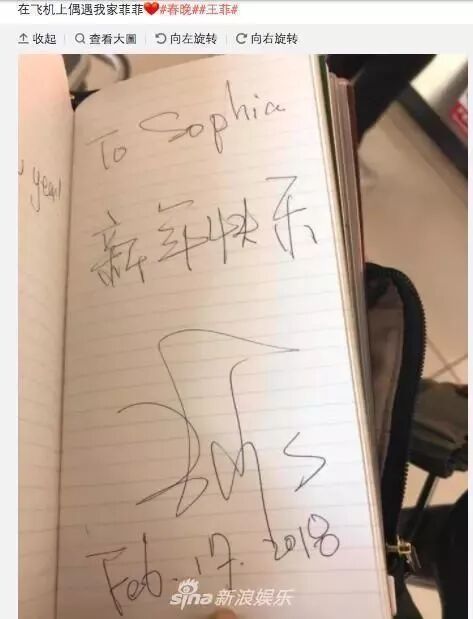 在飞机上偶遇我家菲菲❤#春晚##王菲#
收起 查看大圖 向左旋转 向右旋转
To Sophia
year!
新年快乐
Feb. 17. 2018
sina新浪娱乐